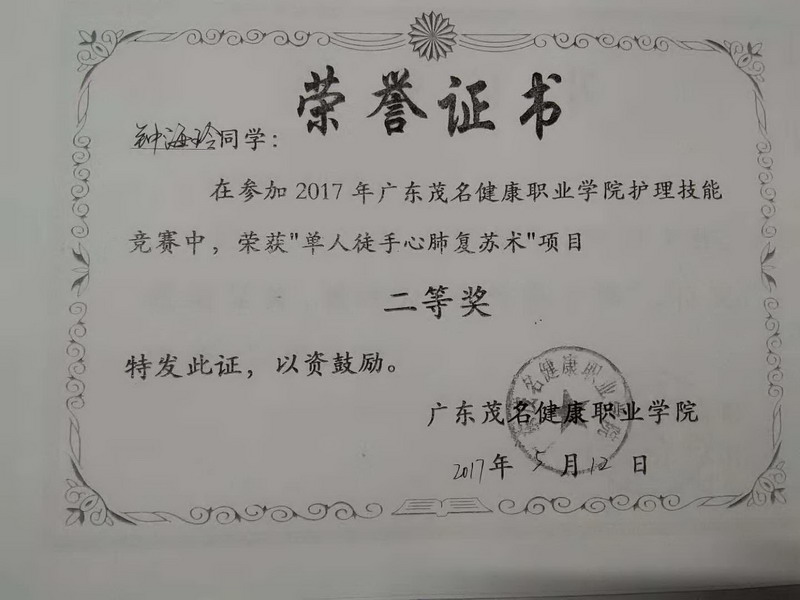 荣誉证书
钟海玲同学：
在参加2017年广东茂名健康职业学院护理技能
竞赛中，荣获"单人徒手心肺复苏术"项目
二等奖
特发此证，以资鼓励。
广东茂名健康职业学院
2017年5月12日